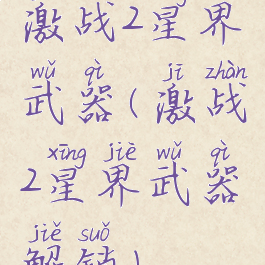 激战2星界
wǔ qì jī zhàn
武器(激战
xīng jiè wǔ qì
2星界武器
jiě suǒ
解锁)